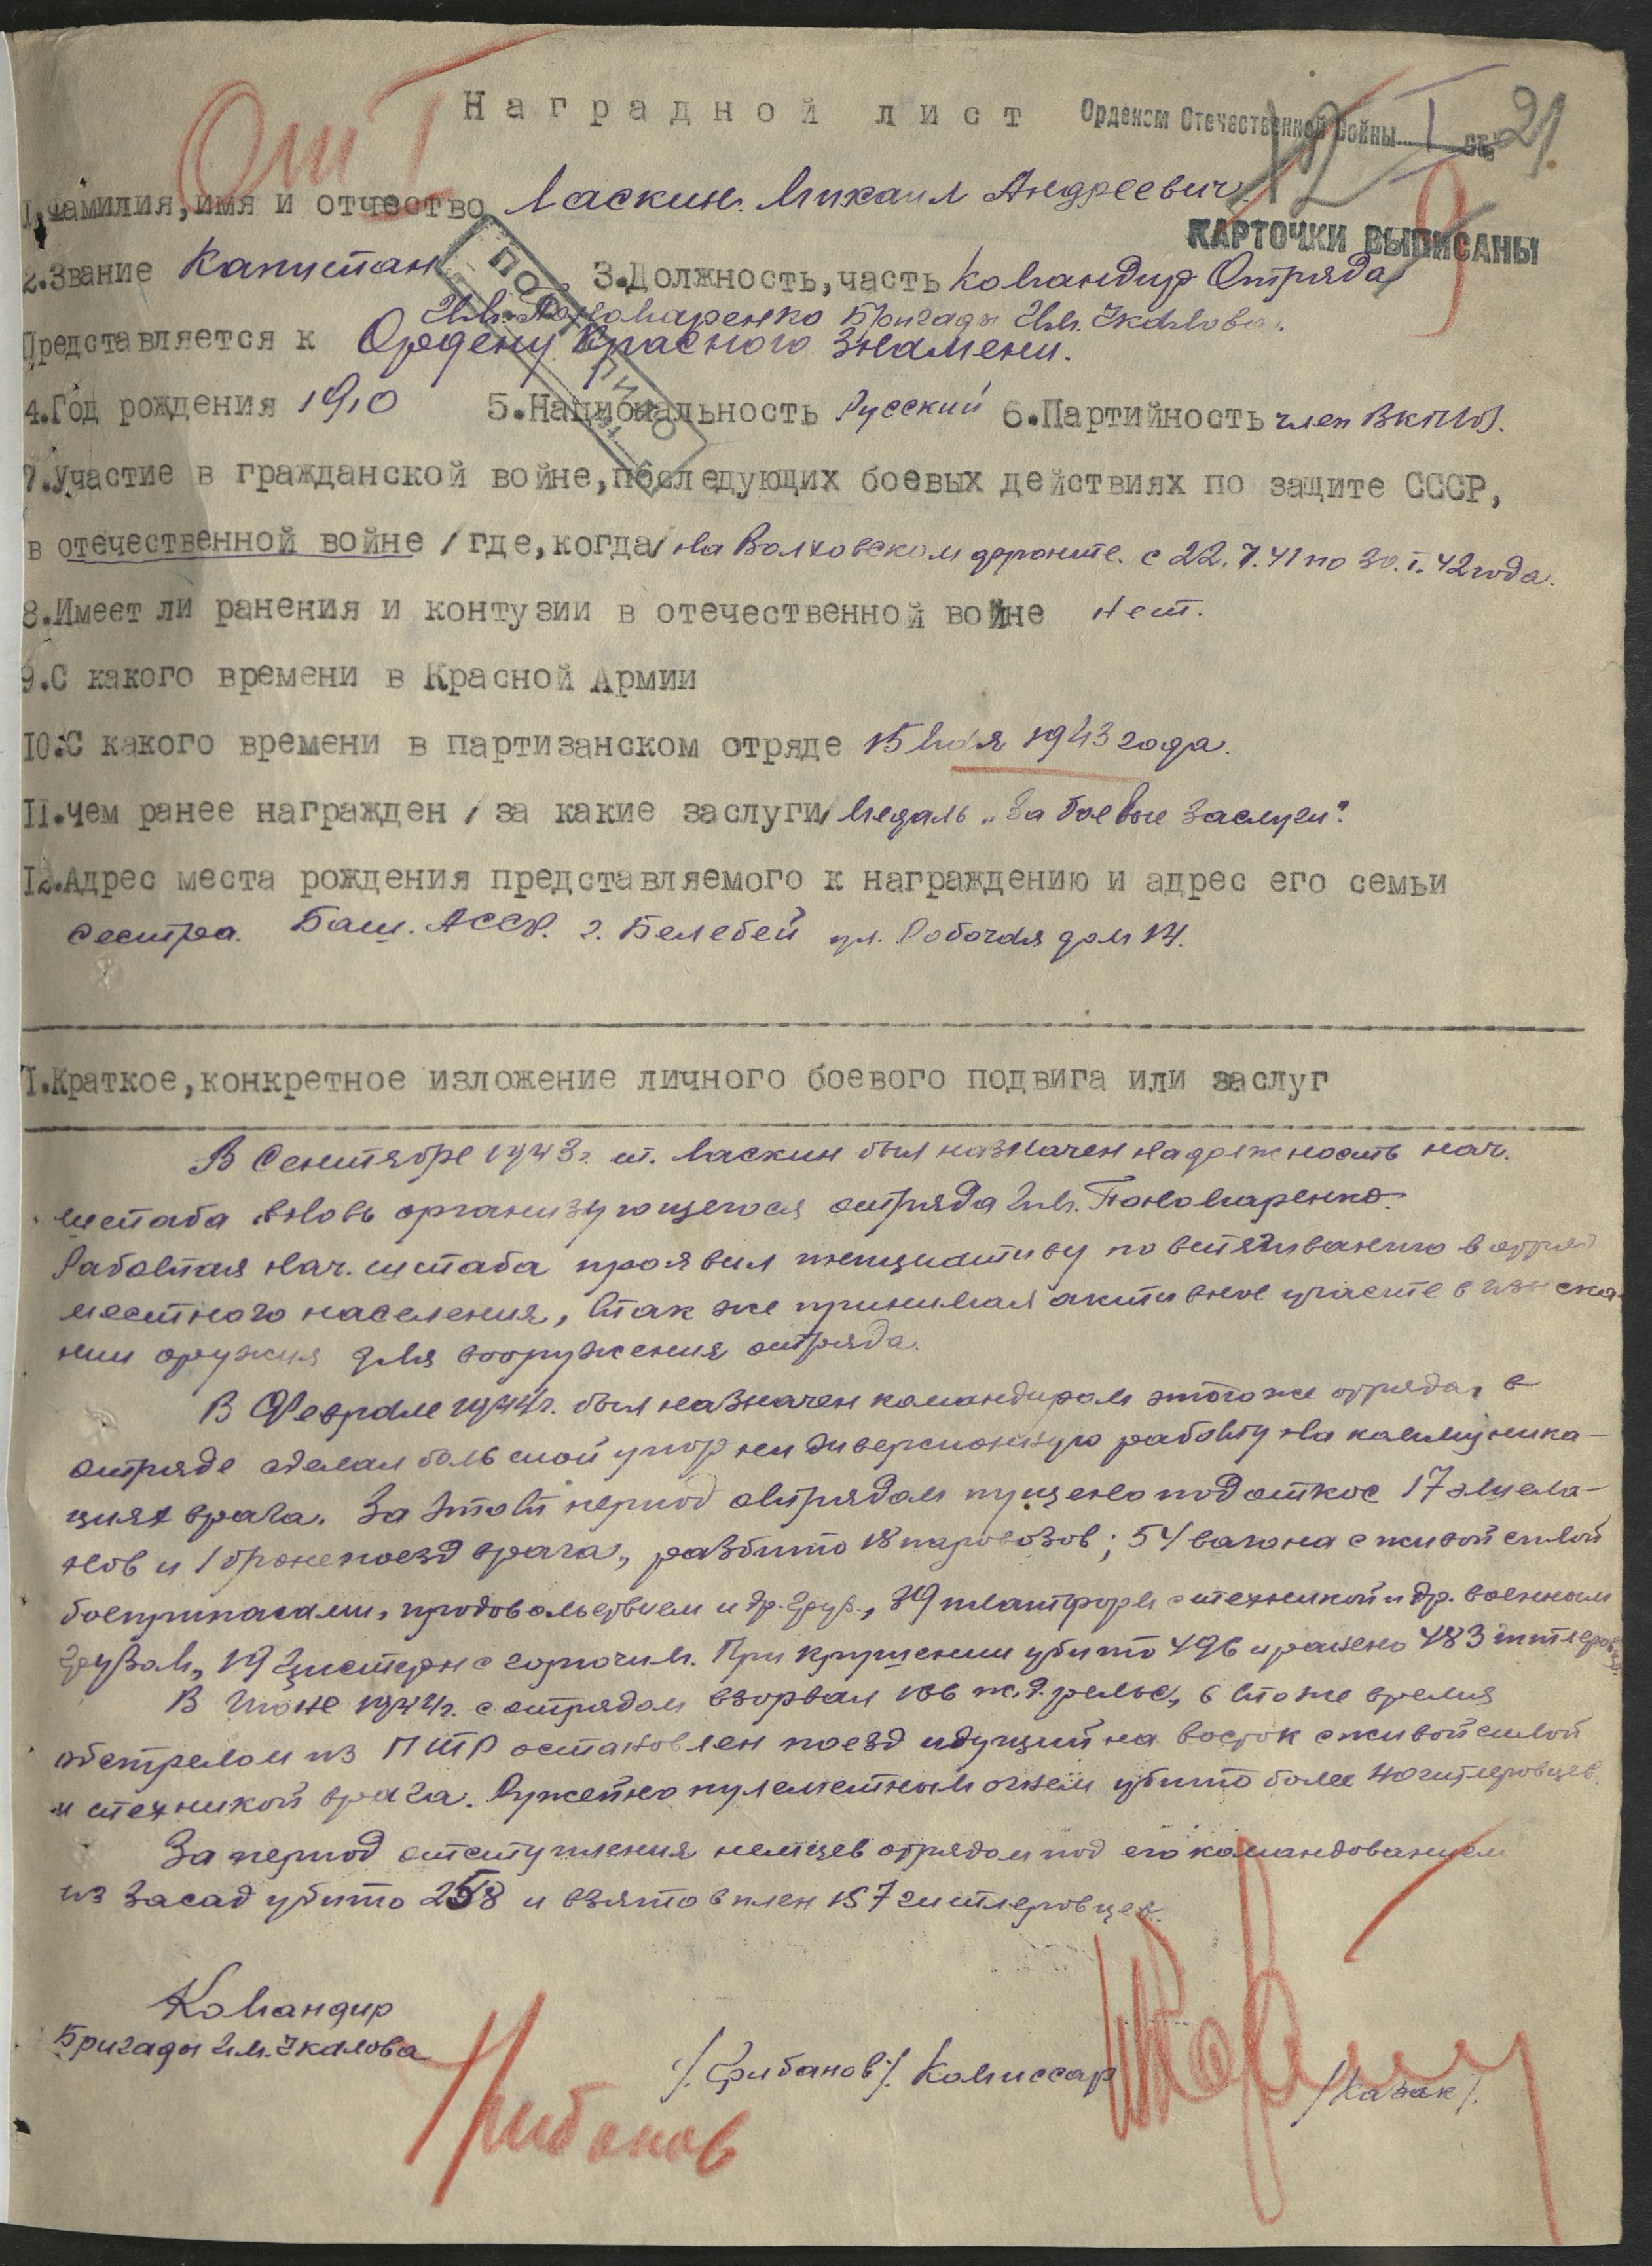 Наградной лист
Орденом Отечественной Войны I ст.
21
1.Фамилия,имя и отчество Ласкин Михаил Андреевич
КАРТОЧКИ ВЫПИСАНЫ
2.Звание Капитан 3.Должность,часть Командир Отряда
Им. Пономаренко Бригады Им. Чкалова.
Представляется к Ордену Красного Знамени.
4.Год рождения 1910 5.Национальность Русский 6.Партийность член ВКП(б).
7.Участие в гражданской войне,последующих боевых действиях по защите СССР,
в отечественной войне /где,когда/ на Волховском фронте. с 22.7.41 по 30.I.42 года.
8.Имеет ли ранения и контузии в отечественной войне Нет.
9.С какого времени в Красной Армии
10.С какого времени в партизанском отряде 15 1943 года.
11.чем ранее награжден / за какие заслуги/ Медаль „За боевые заслуги".
12.Адрес места рождения представляемого к награждению и адрес его семьи
Сестра. Баш. АССР. г. Белебей ул. Рабочая дом 14.
1.Краткое,конкретное изложение личного боевого подвига или заслуг
В Сентябре 1943г. т. Ласкин был назначен на должность нач.
штаба вновь организующегося отряда Им. Пономаренко.
Работая нач. штаба проявил инициативу по втягиванию в отряд
местного населения, также принимал активное участие в изыска-
нии оружия для вооружения отряда.
В Феврале 1944г. был назначен командиром этого же отряда, в
отряде сделал большой упор на диверсионную работу на коммуника-
циях врага. За этот период отрядом пущено под откос 17 эшело-
нов и 1 бронепоезд врага, разбито 18 паровозов; 54 вагона с живой силой
боеприпасами, продовольствием и др. груз., 39 платформ с техникой и др. военным
грузом, 19 цистерн с горючим. При крушении убито 496 и ранено 483 гитлеровц.
В Июне 1944г. с отрядом взорвал 106 ж.д. рельс, в то же время
обстрелом из ПТР остановлен поезд идущий на восток с живой силой
и техникой врага. Ружейно пулеметным огнем убито более 40 гитлеровцев.
За период отступления немцев отрядом под его командованием
из засад убито 258 и взято в плен 157 гитлеровцев.
Командир
Бригады Им. Чкалова
/Грибанов/. Комиссар /Казак/.
Грибанов